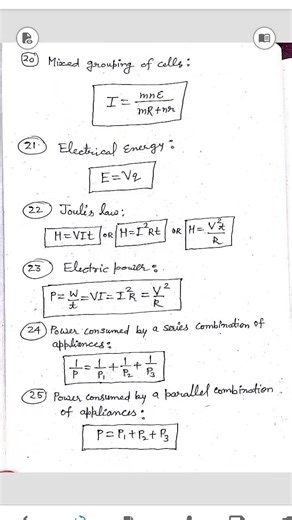 20 Mixed grouping of cells :
I = mnE / mR+nr
21. Electrical Energy :
E = Vq
22 Joul's law :
H = VIt OR H = I²Rt OR H = V²t / R
23 Electric power :
P = W/t = VI = I²R = V²/R
24 Power consumed by a series combination of
appliances :
1/P = 1/P₁ + 1/P₂ + 1/P₃
25 Power consumed by a parallel combination
of appliances :
P = P₁ + P₂ + P₃